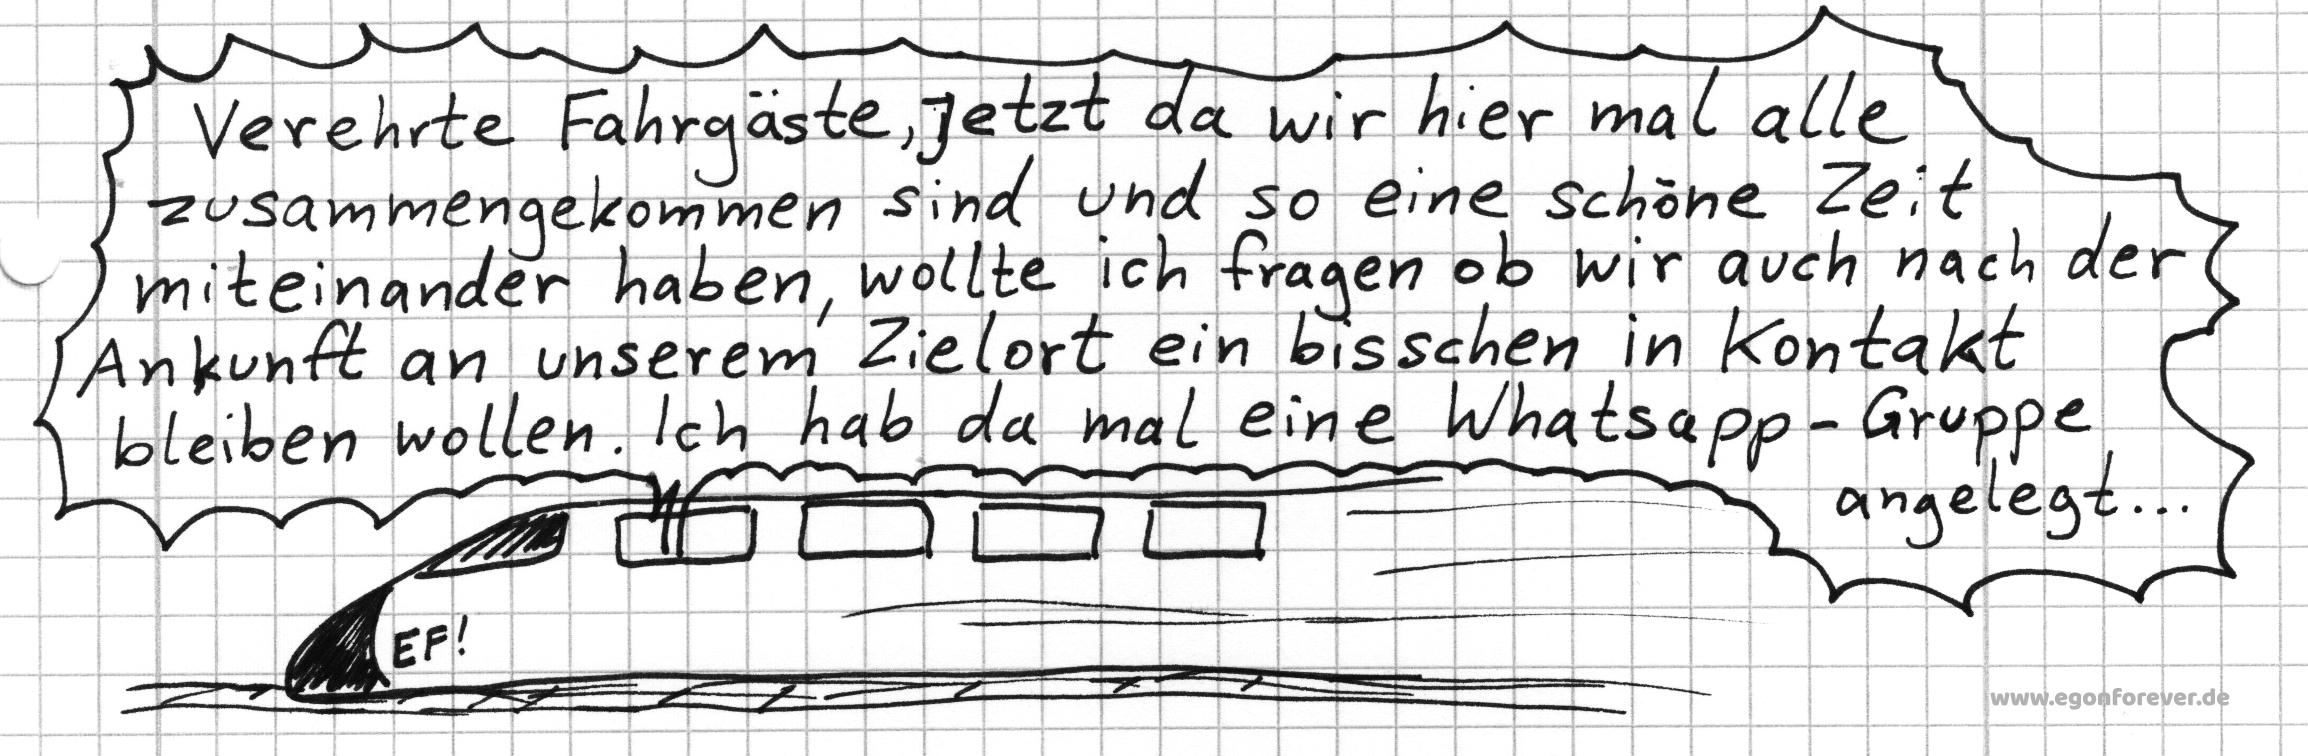 Verehrte Fahrgäste, jetzt da wir hier mal alle
zusammengekommen sind und so eine schöne Zeit
miteinander haben, wollte ich fragen ob wir auch nach der
Ankunft an unserem Zielort ein bisschen in Kontakt
bleiben wollen. Ich hab da mal eine Whatsapp-Gruppe
angelegt...
EF!
www.egonforever.de